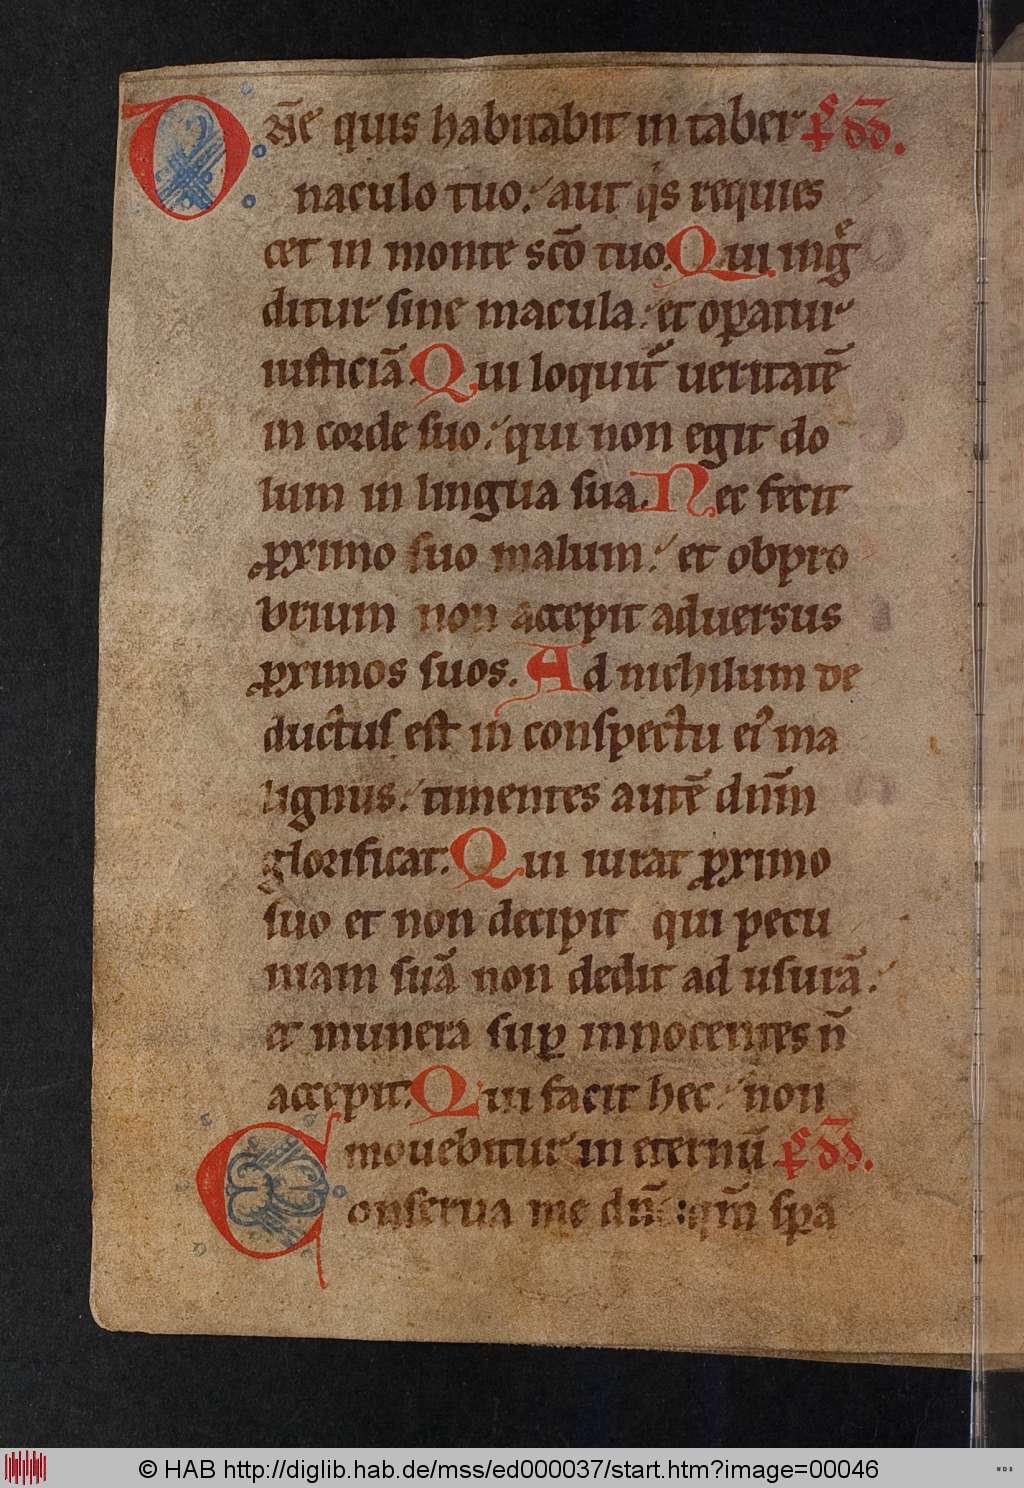 Dñe quis habitabit in taber p̄s dd̄.
naculo tuo: aut qͥs requies
cet in monte scō tuo. Qui ingͤ
ditur sine macula: et oꝑatur
iusticiā. Qui loquit᷑ ueritatē
in corde suo: qui non egit do
lum in lingua sua. Nec fecit
ꝓximo suo malum: et obpro
brium non accepit aduersus
ꝓximos suos. Ad nichilum de
ductus est in conspectu eiꝰ ma
lignus: timentes autē dñm
glorificat. Qui iurat ꝓximo
suo et non decipit qui pecu
niam suā non dedit ad usurā:
et munera suꝑ innocentes n̄
accepit. Qui facit hec: non
mouebitur in eternū p̄s dd̄.
Conserua me dñe: qm̄ spa
© HAB http://diglib.hab.de/mss/ed000037/start.htm?image=00046